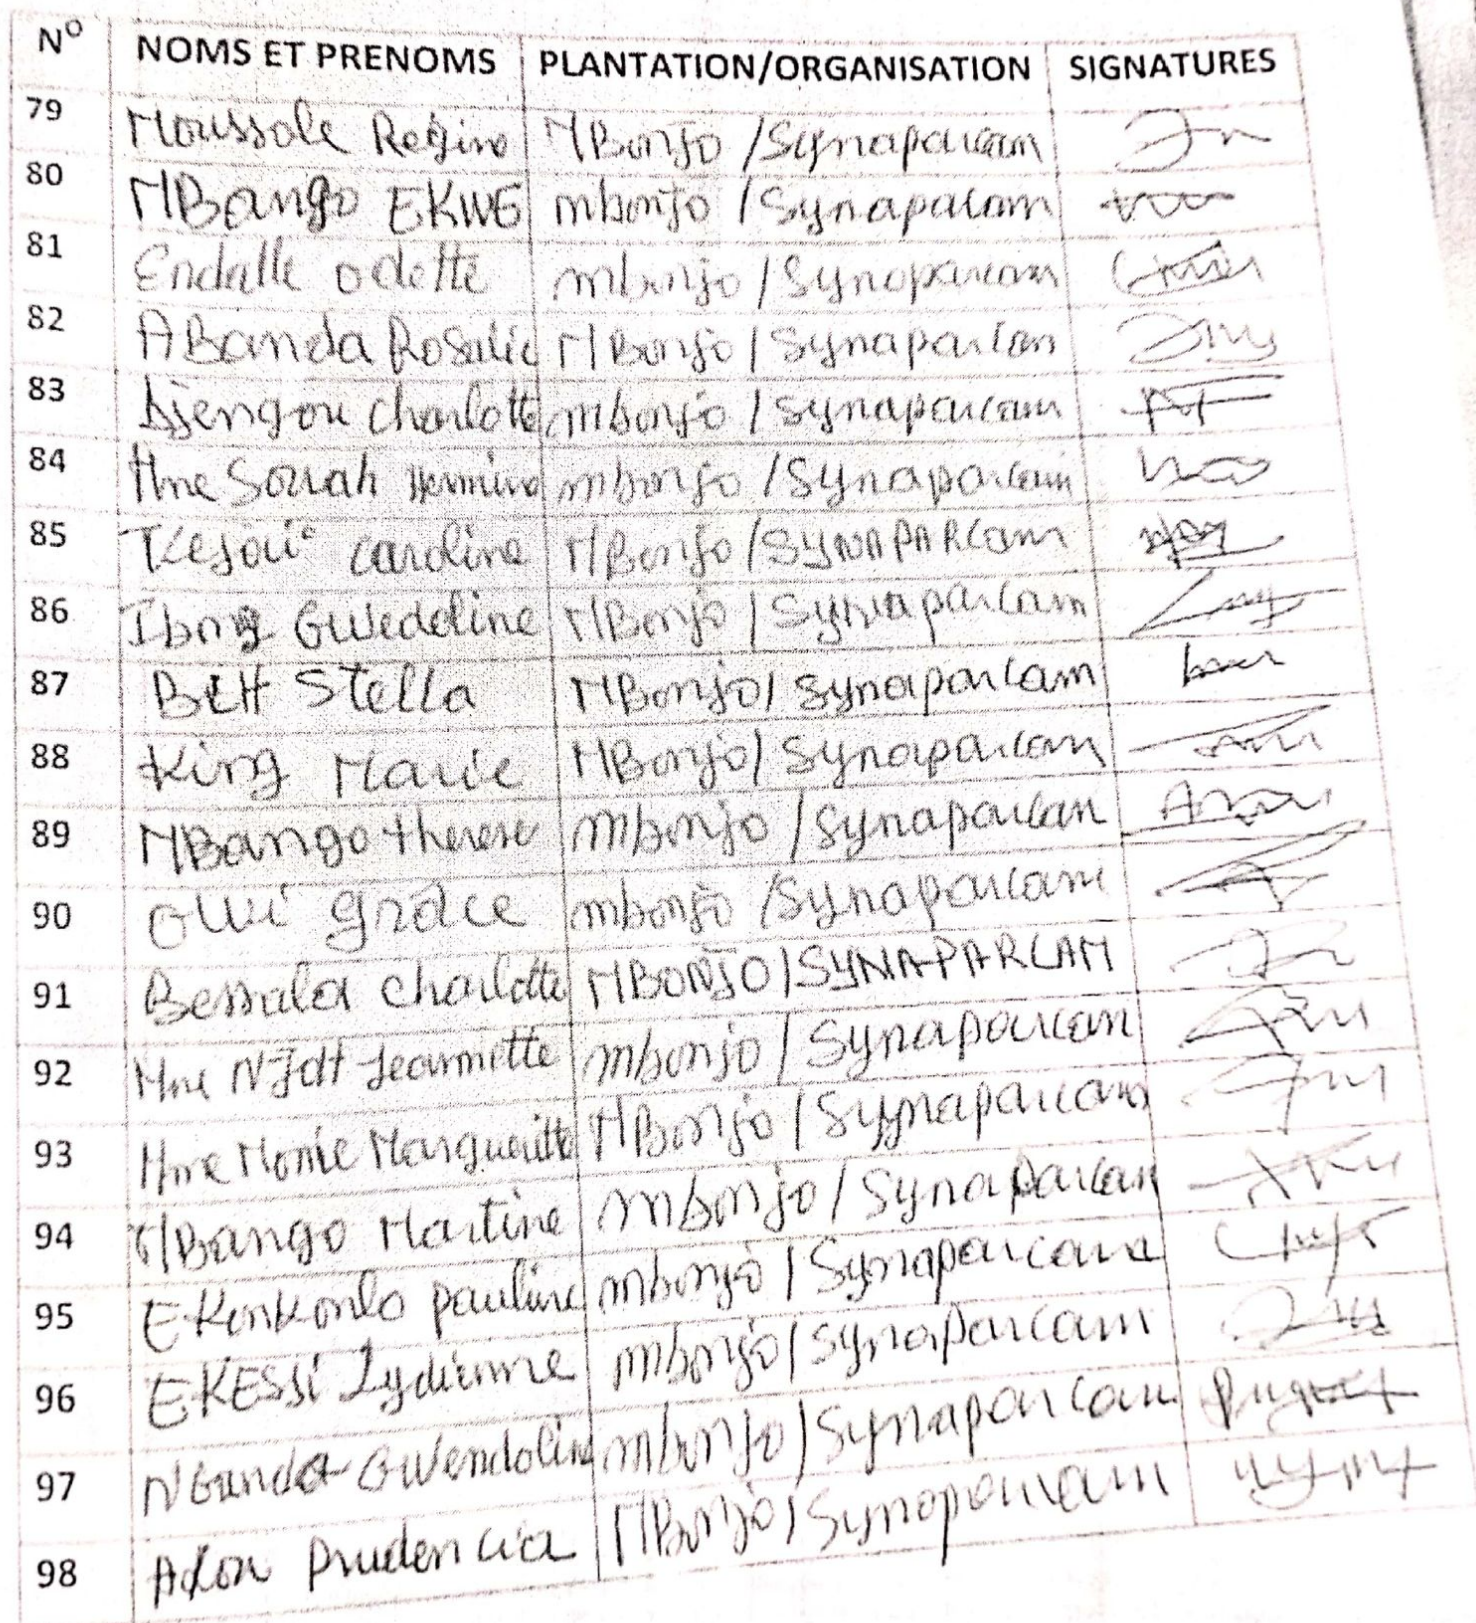 N° NOMS ET PRENOMS PLANTATION/ORGANISATION SIGNATURES
79 Moussole Regine MBonjo /Synaparcam
80 MBango EKWE mbonjo /Synaparam
81 Endalle odette mbonjo /Synaparcam
82 ABanda Rosalie MBonjo / Synaparcam
83 Djengou charlotte mbonjo / synaparcam
84 Mme Sorrah Hermine mbonjo /Synaparcam
85 caroline MBonjo /SYNAPARCam
86 Ibong Gwedeline MBonjo / Synaparcam
87 Stella MBonjo/ Synaparcam
88 King Marie MBonjo/ Synaparcam
89 MBango therese mbonjo /Synaparcam
90 grace mbonjo /Synaparcam
91 Bessala charlotte MBONJO/SYNAPARCAM
92 Mme Jeannette mbonjo / Synaparcam
93 Mme Monie Margueritte MBonjo / Synaparcam
94 MBango Martine mbonjo / Synaparcam
95 Ekonkonlo pauline mbonjo / Synaparcam
96 EKESSI Lydienne mbonjo/Synaparcam
97 Gwendoline mbonjo/Synaparcam
98 Prudencia MBonjo/Synaparcam